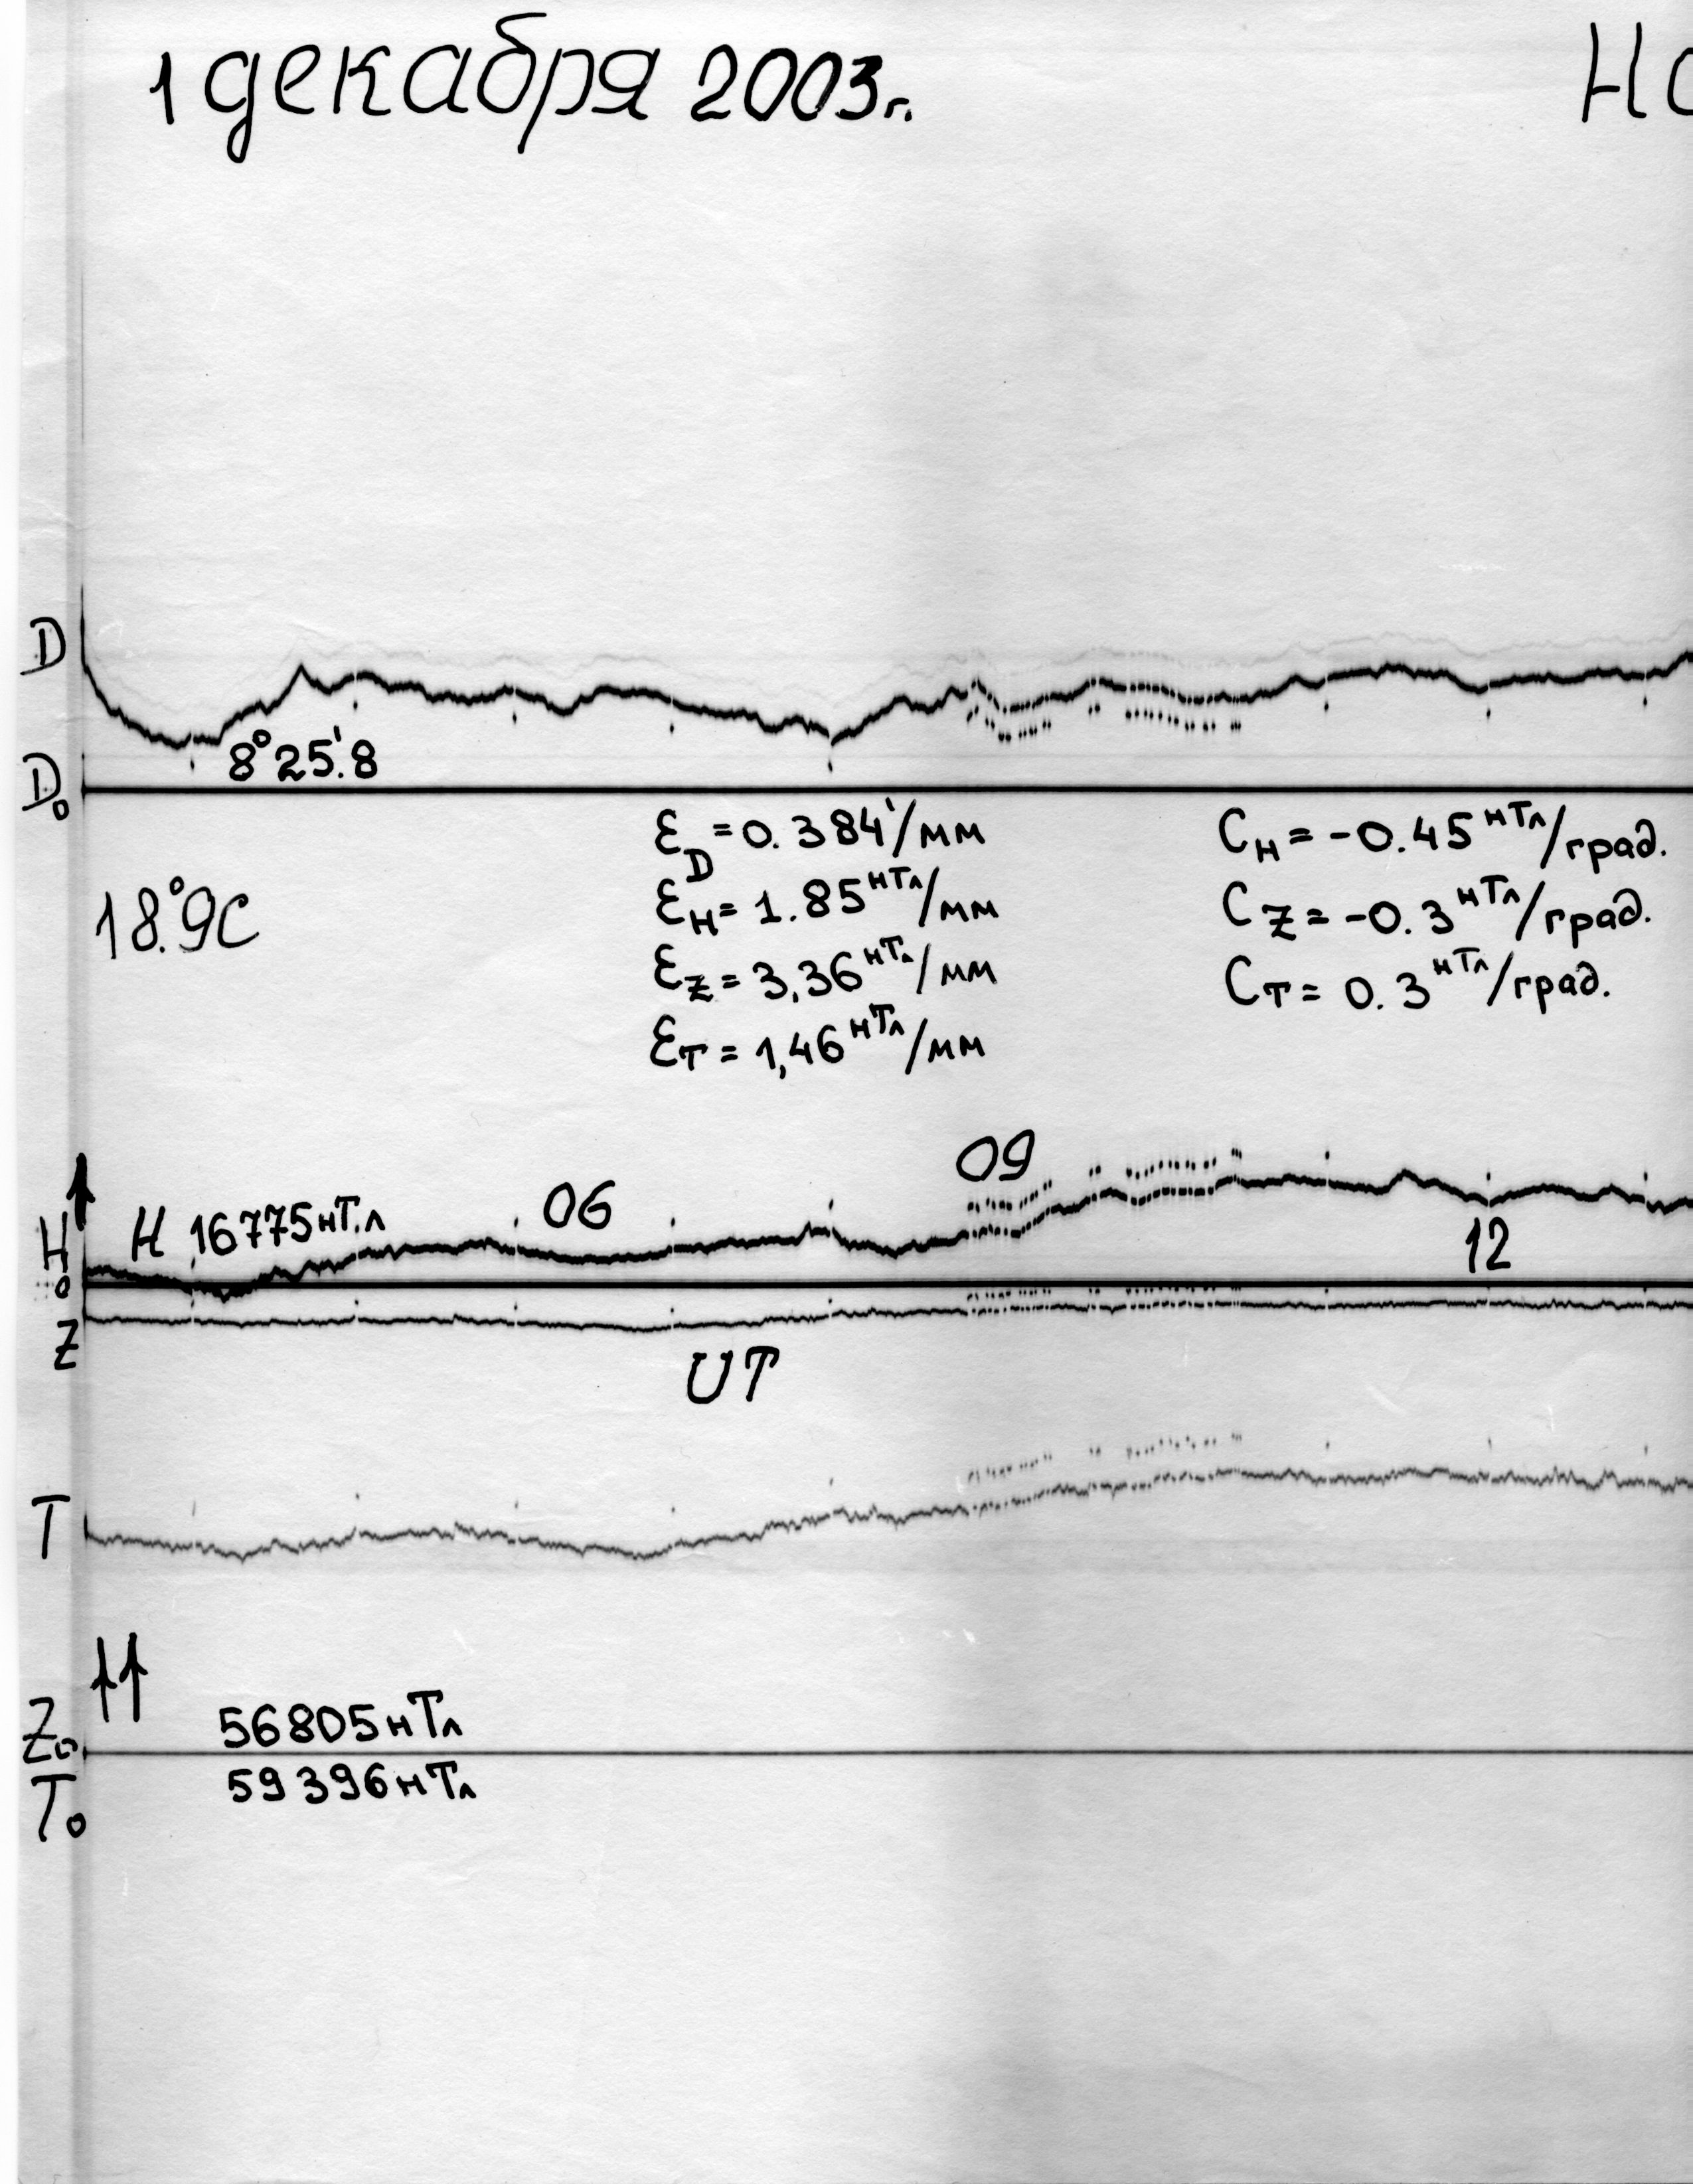 1 декабря 2003г. Но
D
8°25'.8
D₀
ε_D = 0.384'/мм C_H = -0.45 нТл/град.
18.°9C ε_H = 1.85 нТл/мм C_Z = -0.3 нТл/град.
ε_Z = 3,36 нТл/мм C_T = 0.3 нТл/град.
ε_T = 1,46 нТл/мм
09
06
H 16775нТ.л
H₀
12
Z
UT
T
56805нТл
Z₀
59396нТл
T₀